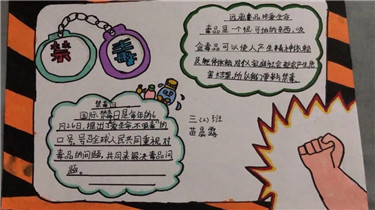 禁毒
远离毒品珍爱生命
毒品是一个很可怕的东西,吸
食毒品可以使人产生精神依赖
及躯体依赖,对
禁毒日
国际禁毒日是每年的6
月26日,提出了“爱生命不吸毒”的
口号,号召全球人民共同重视对
毒品的问题,共同来解决毒品问
题。
三(2)班
苗晨露